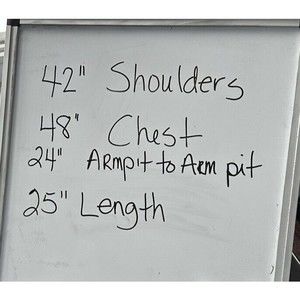 42" Shoulders
48" Chest
24" ARmpit to ARm pit
25" Length